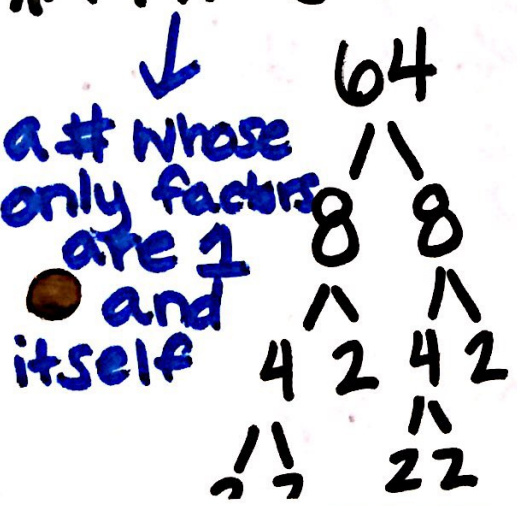 a # whose
only factors
are 1
and
itself
64
8 8
4 2 4 2
2 2